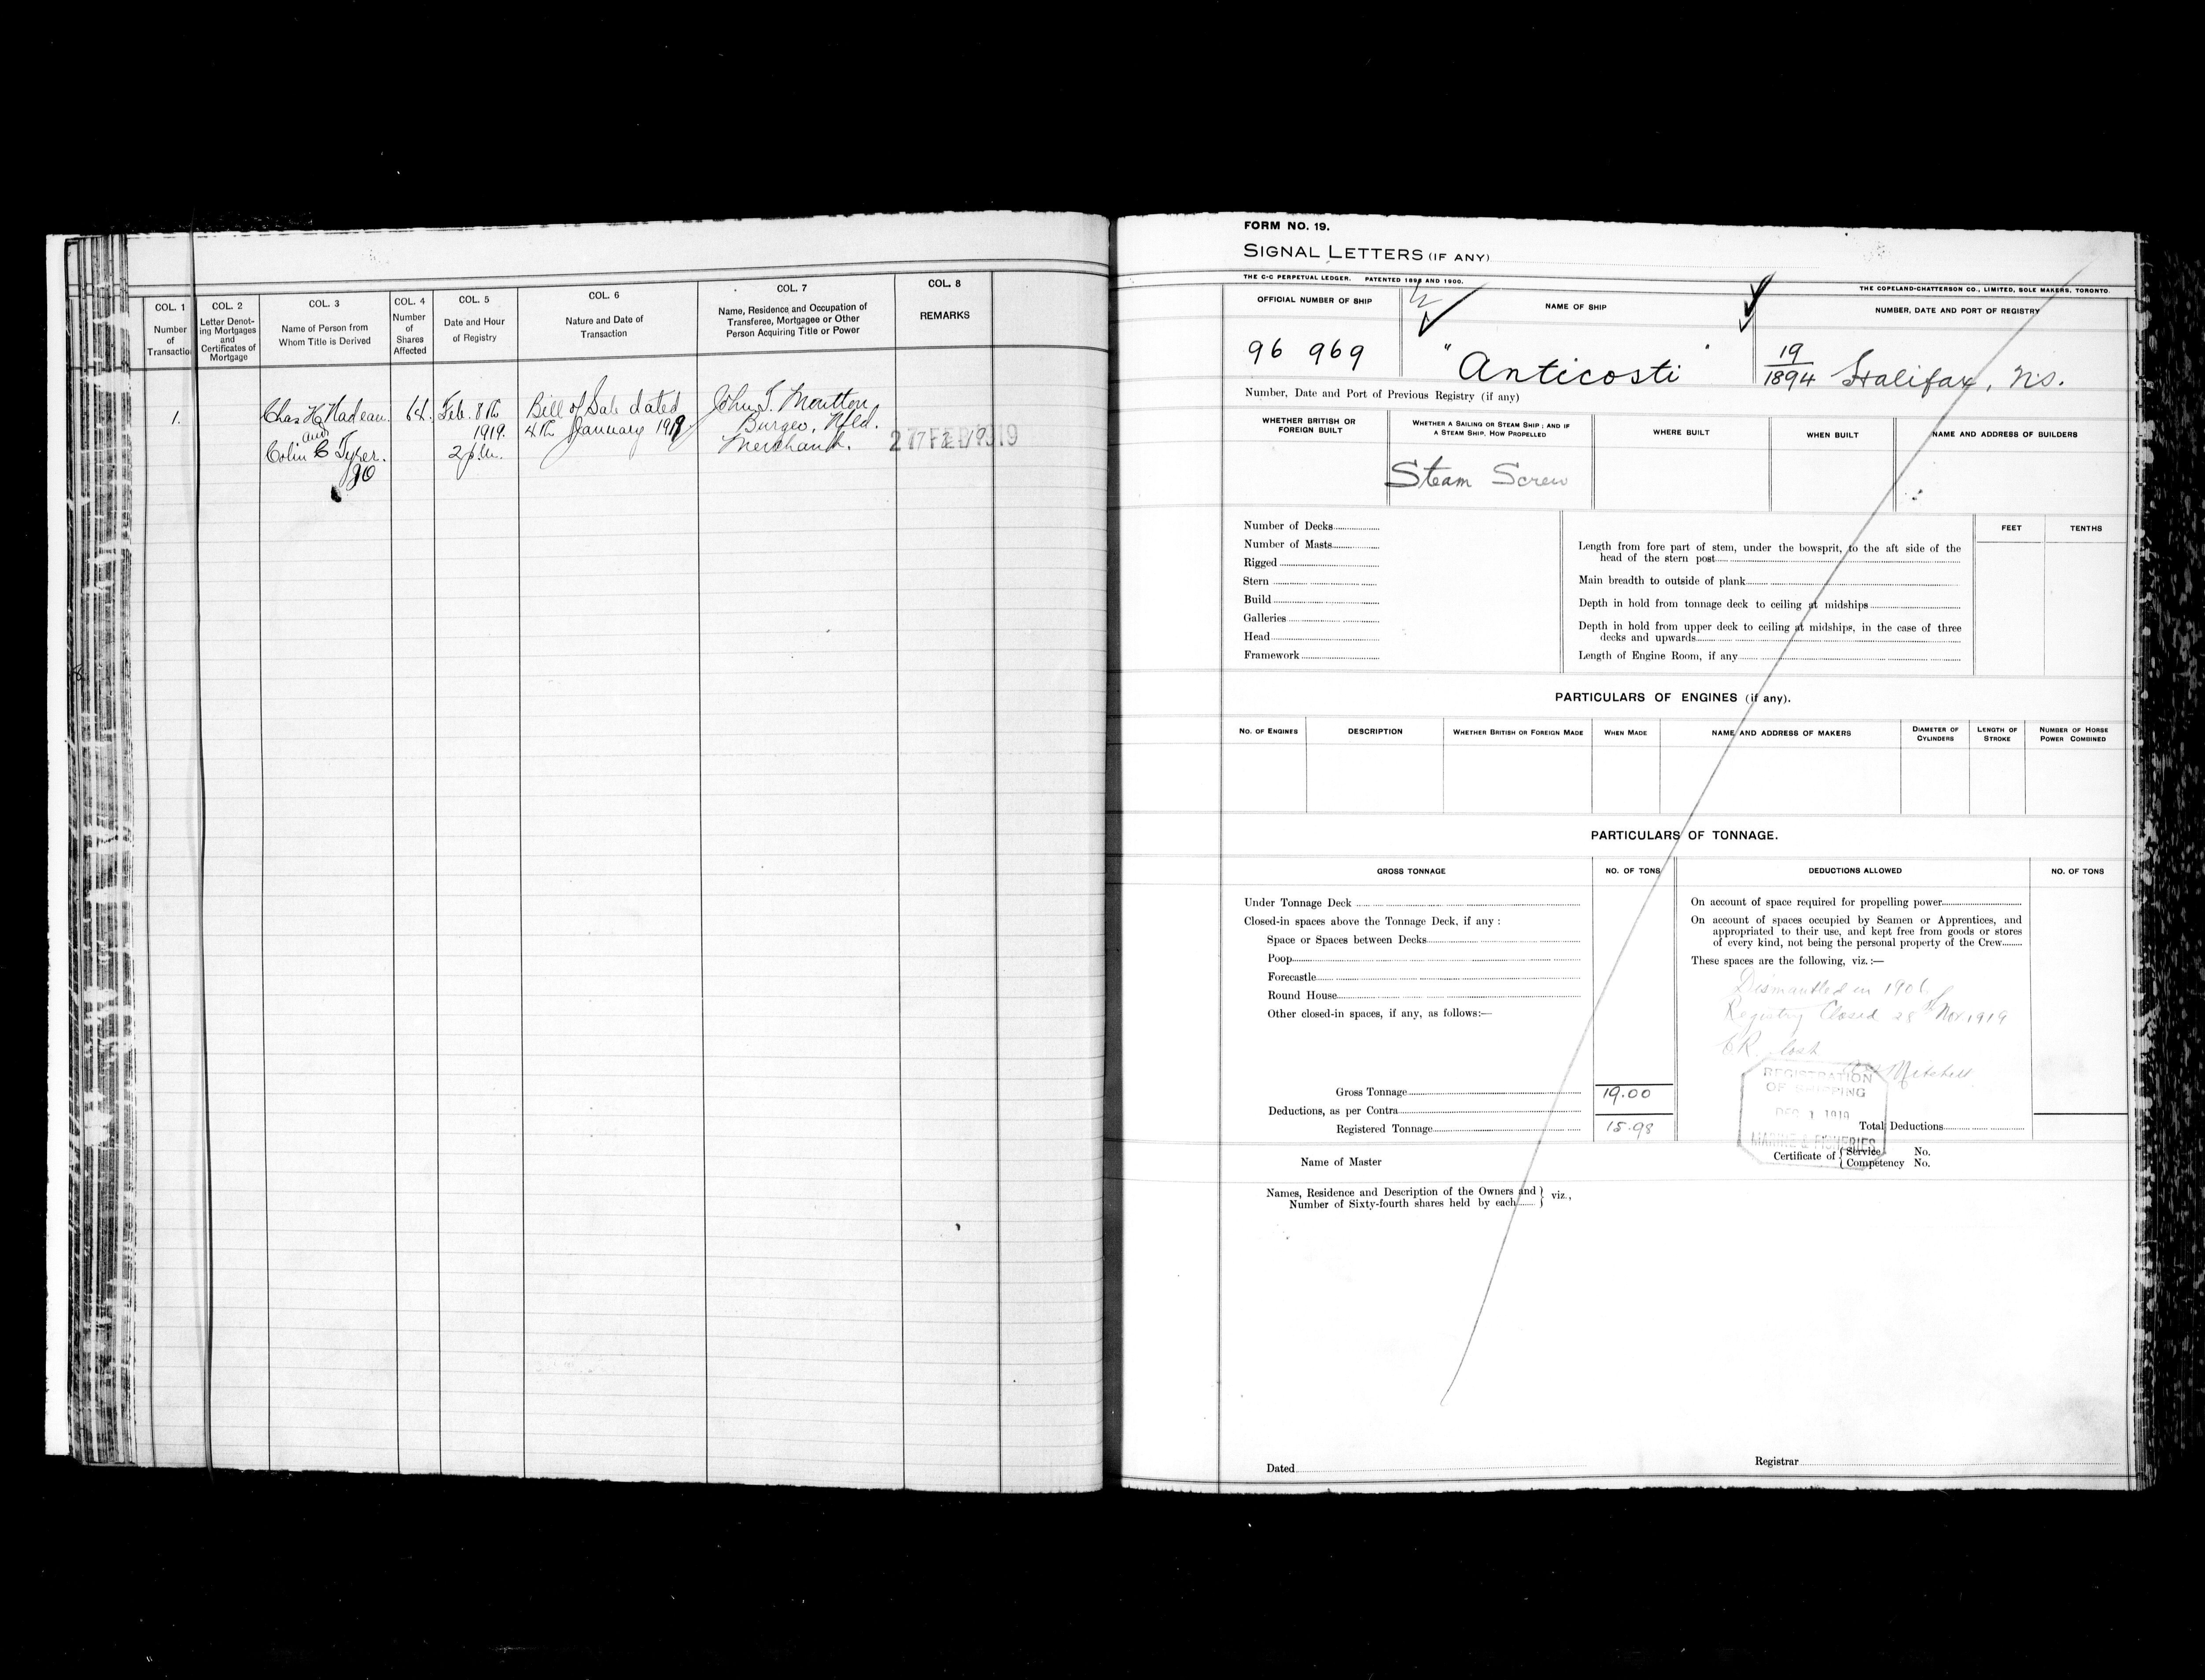 COL. 1
Number
of
Transactio
COL. 2
Letter Denot-
ing Mortgages
and
Certificates of
Mortgage
COL. 3
Name of Person from
Whom Title is Derived
COL. 4
Number
of
Shares
Affected
COL. 5
Date and Hour
of Registry
COL. 6
Nature and Date of
Transaction
COL. 7
Name, Residence and Occupation of
Transferee, Mortgagee or Other
Person Acquiring Title or Power
COL. 8
REMARKS
1.
Chas H Nadeau
and
Colin C
64.
Feb. 8th
1919.
2 p.m.
Bill of Sale dated
4th January 1919
John T. Moulton
Burgeo, Nfld.
Merchant.
27 FEB 1919
FORM NO. 19.
SIGNAL LETTERS (IF ANY)
THE C-C PERPETUAL LEDGER. PATENTED 1898 AND 1900.
THE COPELAND-CHATTERSON CO., LIMITED, SOLE MAKERS, TORONTO.
OFFICIAL NUMBER OF SHIP
NAME OF SHIP
NUMBER, DATE AND PORT OF REGISTRY
96 969
"Anticosti"
19
1894 Halifax, N.S.
Number, Date and Port of Previous Registry (if any)
WHETHER BRITISH OR
FOREIGN BUILT
WHETHER A SAILING OR STEAM SHIP; AND IF
A STEAM SHIP, HOW PROPELLED
WHERE BUILT
WHEN BUILT
NAME AND ADDRESS OF BUILDERS
Steam Screw
Number of Decks
Number of Masts
Rigged
Stern
Build
Galleries
Head
Framework
FEET
TENTHS
Length from fore part of stem, under the bowsprit, to the aft side of the
head of the stern post
Main breadth to outside of plank
Depth in hold from tonnage deck to ceiling at midships
Depth in hold from upper deck to ceiling at midships, in the case of three
decks and upwards
Length of Engine Room, if any
PARTICULARS OF ENGINES (if any).
NO. OF ENGINES
DESCRIPTION
WHETHER BRITISH OR FOREIGN MADE
WHEN MADE
NAME AND ADDRESS OF MAKERS
DIAMETER OF
CYLINDERS
LENGTH OF
STROKE
NUMBER OF HORSE
POWER COMBINED
PARTICULARS OF TONNAGE.
GROSS TONNAGE
NO. OF TONS
DEDUCTIONS ALLOWED
NO. OF TONS
Under Tonnage Deck
Closed-in spaces above the Tonnage Deck, if any :
Space or Spaces between Decks
Poop
Forecastle
Round House
Other closed-in spaces, if any, as follows:—
Gross Tonnage
19.00
Deductions, as per Contra
Registered Tonnage
15.98
On account of space required for propelling power
On account of spaces occupied by Seamen or Apprentices, and
appropriated to their use, and kept free from goods or stores
of every kind, not being the personal property of the Crew
These spaces are the following, viz. :—
Dismantled in 1906
Registry Closed 28th Nov 1919
C.R. lost
Mitchell
REGISTRATION
OF SHIPPING
DEC 1 1919
MARINE & FISHERIES
Total Deductions
Name of Master
Certificate of { Service No.
{ Competency No.
Names, Residence and Description of the Owners and } viz.,
Number of Sixty-fourth shares held by each }
Dated
Registrar